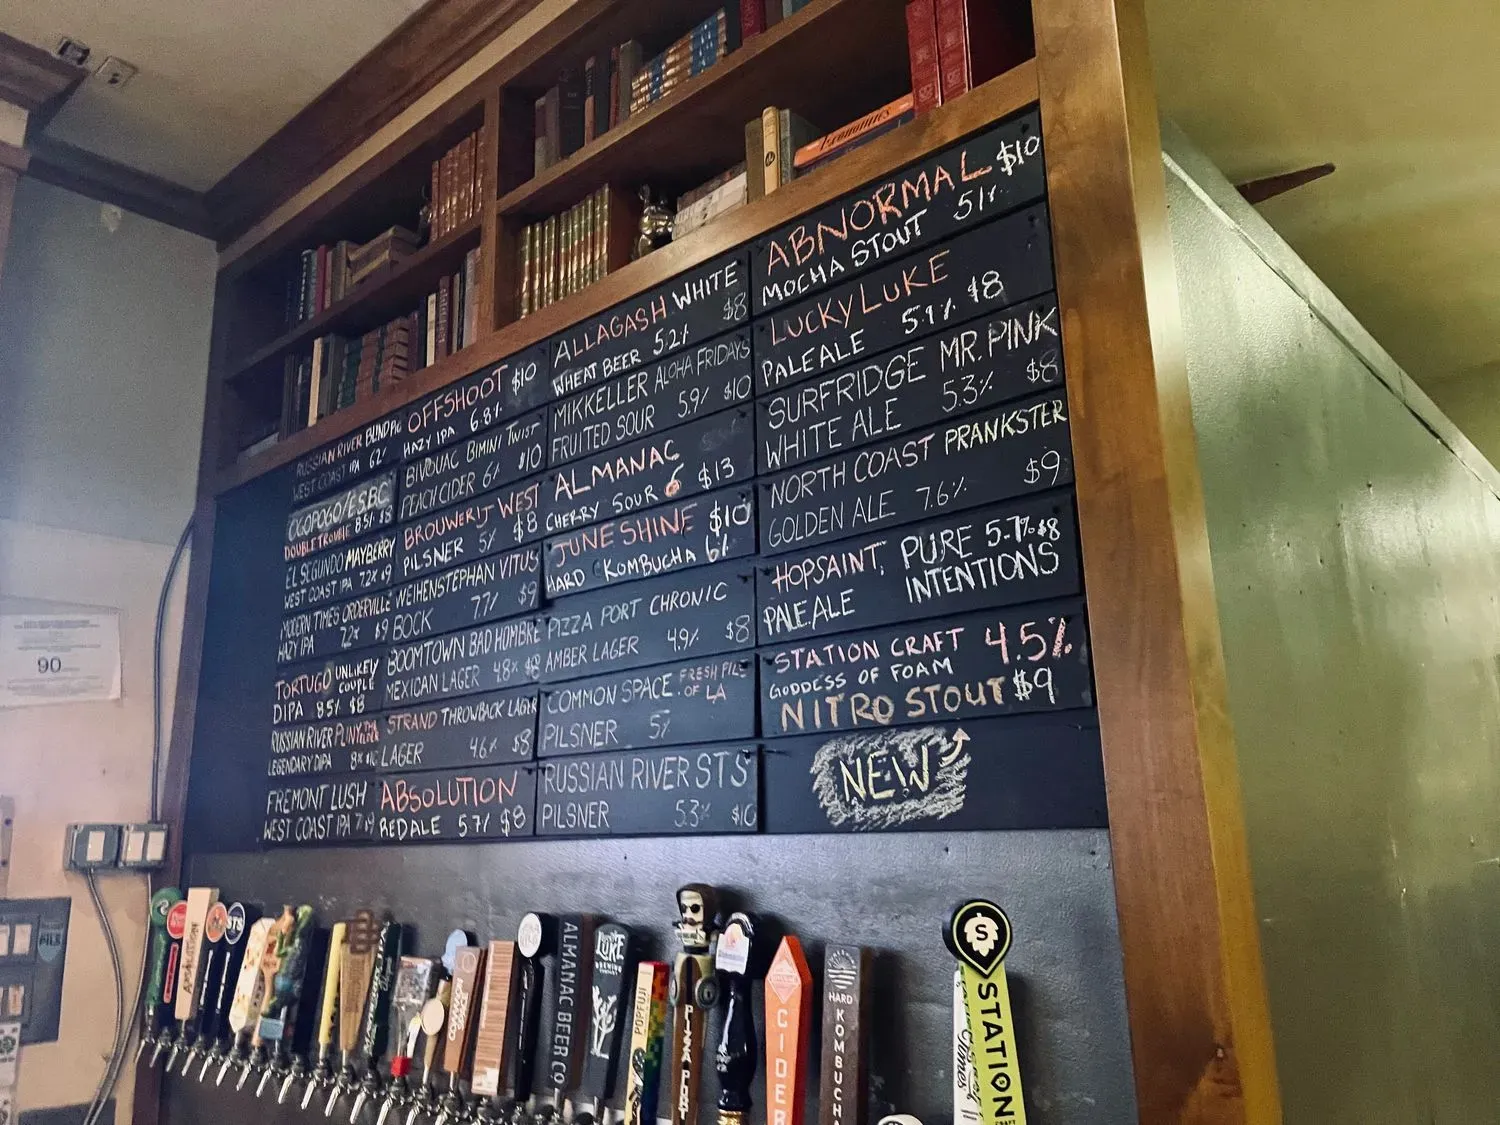 RUSSIAN RIVER BLIND PIG
WEST COAST IPA 6.2%
OGOPOGO/ESBC
DOUBLE TROUBLE 8.5% $8
EL SEGUNDO MAYBERRY
WEST COAST IPA 7.2% $9
MODERN TIMES ORDERVILLE
HAZY IPA 7.2% $9
TORTUGO UNLIKELY
COUPLE
DIPA 8.5% $8
RUSSIAN RIVER PLINY
LEGENDARY DIPA 8% $10
FREMONT LUSH
WEST COAST IPA 7% $9
OFFSHOOT $10
HAZY IPA 6.8%
BIVOUAC BIMINI TWIST
PEACH CIDER 6% $10
BROUWERIJ WEST
PILSNER 5% $8
WEIHENSTEPHAN VITUS
BOCK 7.7% $9
BOOMTOWN BAD HOMBRE
MEXICAN LAGER 4.8% $8
STRAND THROWBACK LAGER
LAGER 4.6% $8
ABSOLUTION
RED ALE 5.7% $8
ALLAGASH WHITE
WHEAT BEER 5.2% $8
MIKKELLER ALOHA FRIDAYS
FRUITED SOUR 5.9% $10
ALMANAC
CHERRY SOUR 6 $13
JUNESHINE $10
HARD KOMBUCHA 6%
PIZZA PORT CHRONIC
AMBER LAGER 4.9% $8
COMMON SPACE FRESH PILS
OF LA
PILSNER 5%
RUSSIAN RIVER STS
PILSNER 5.3% $10
ABNORMAL $10
MOCHA STOUT 5.1%
LUCKY LUKE
PALE ALE 5.1% $8
SURFRIDGE MR. PINK
WHITE ALE 5.3% $8
NORTH COAST PRANKSTER
GOLDEN ALE 7.6% $9
HOPSAINT, PURE 5.7% $8
PALE ALE INTENTIONS
STATION CRAFT 4.5%
GODDESS OF FOAM
NITRO STOUT $9
NEW
90
PILS
ABSOLUTION
STS
COMMON
ALMANAC BEER CO
LUKE
BREWING
POPFUJI
PIZZA PORT
CIDER
HARD
KOMBUCHA
Times
S
STATION
CRAFT